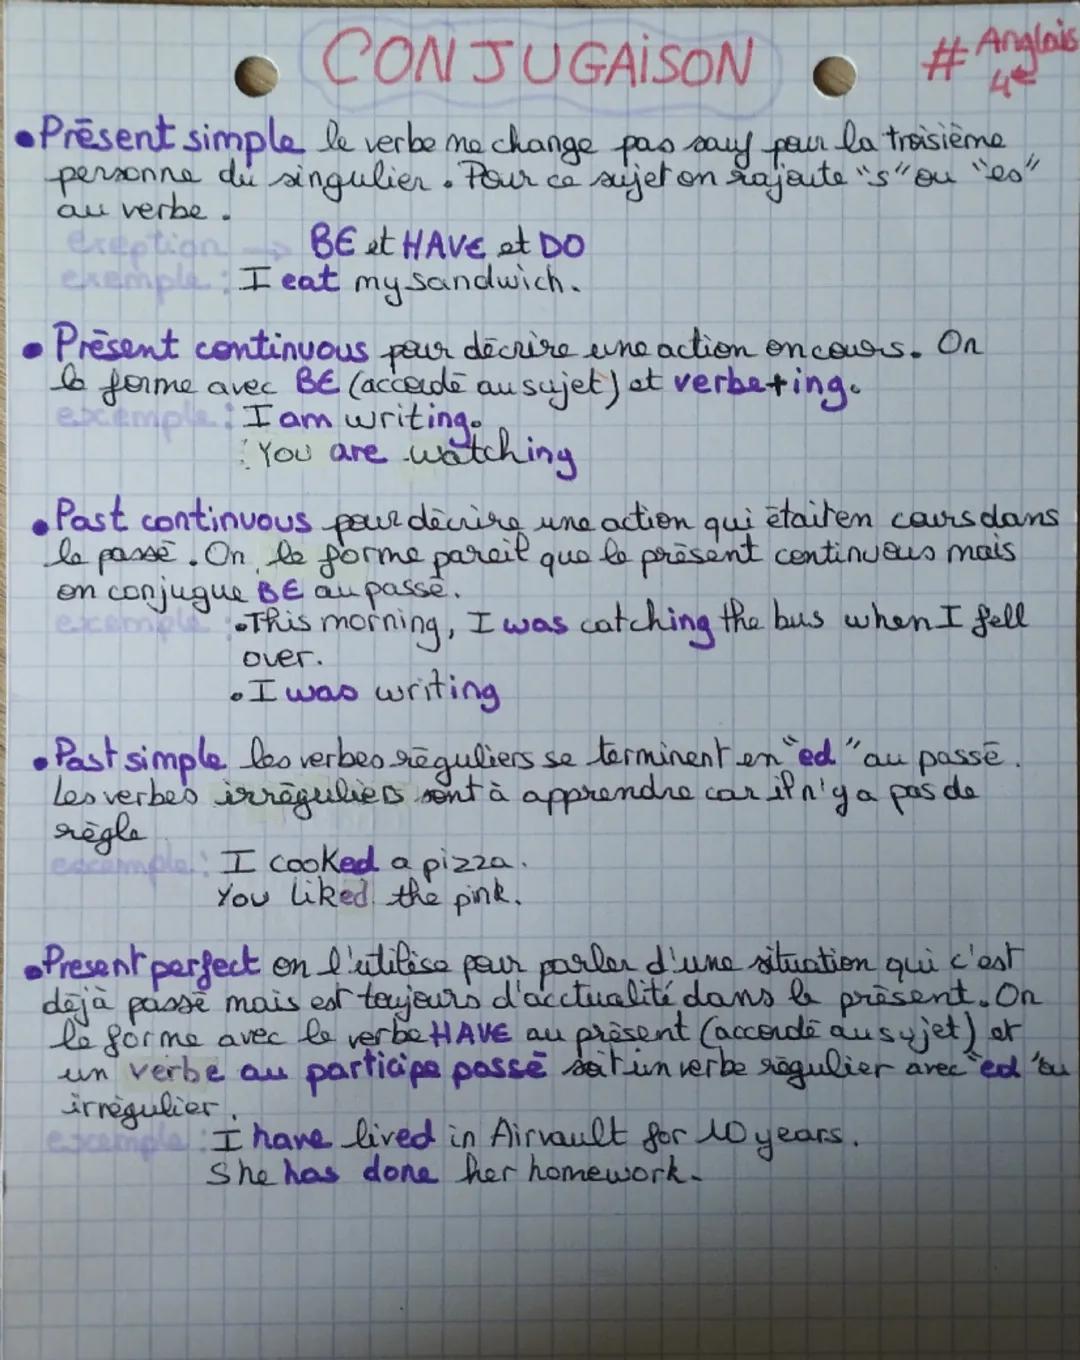 CONJUGAISON
# Anglais
4e
• Présent simple le verbe ne change pas sauf pour la troisième
personne du singulier. Pour ce sujet on rajoute "s" ou "es"
au verbe.
exeption → BE et HAVE et DO
exemple : I eat my sandwich.
• Présent continuous pour décrire une action en cours. On
le forme avec BE (accordé au sujet) et verbe+ing.
exemple : I am writing.
: You are watching
• Past continuous pour décrire une action qui était en cours dans
le passé. On le forme pareil que le présent continuous mais
on conjugue BE au passé.
exemple : • This morning, I was catching the bus when I fell
over.
• I was writing
• Past simple les verbes réguliers se terminent en "ed" au passé.
Les verbes irréguliers sont à apprendre car il n'y a pas de
règle
exemple : I cooked a pizza.
You liked the pink.
• Present perfect on l'utilise pour parler d'une situation qui c'est
déjà passé mais est toujours d'acctualité dans le présent. On
le forme avec le verbe HAVE au présent (accordé au sujet) et
un verbe au participe passé soit un verbe régulier avec "ed" ou
irrégulier.
exemple : I have lived in Airvault for 10 years.
She has done her homework.